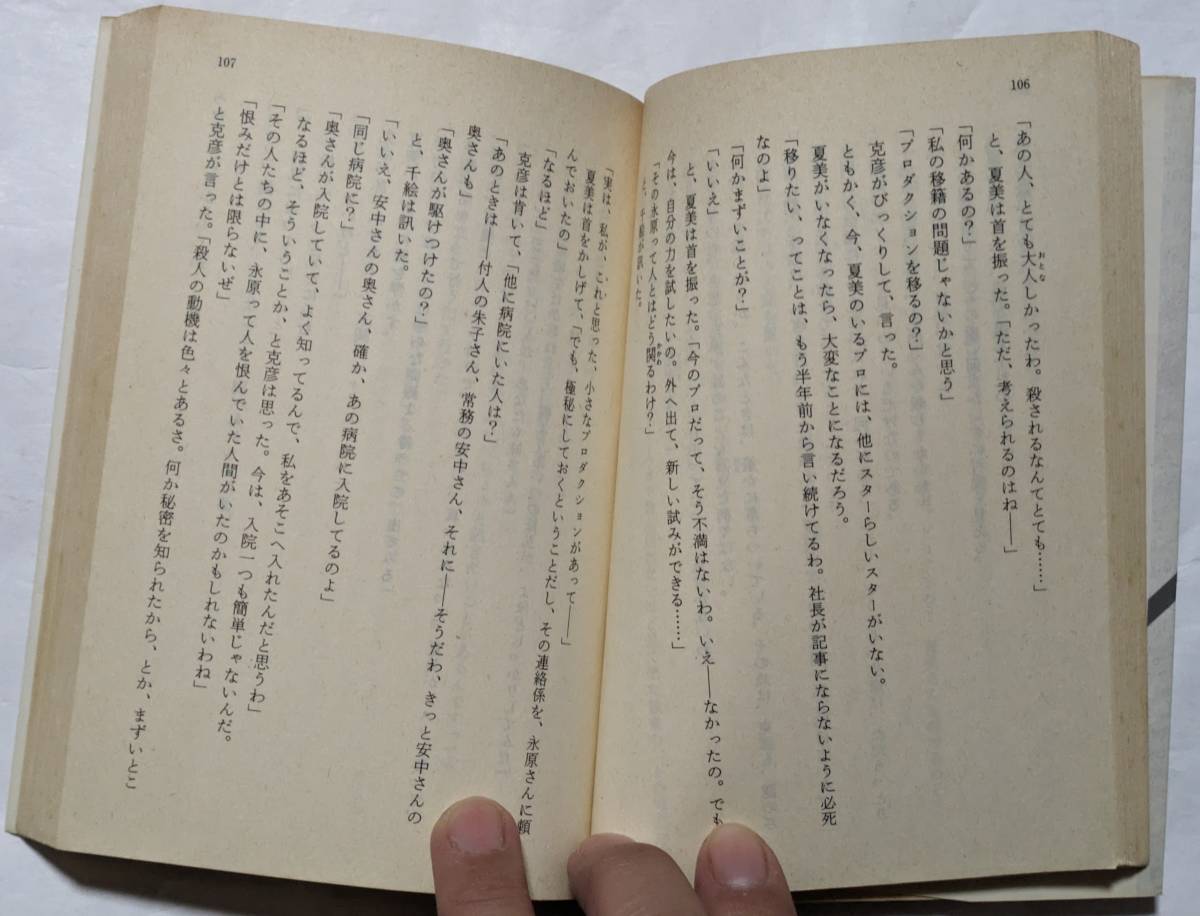 106
「あの人、とても大人しかったわ。殺されるなんてとても……」
おとな
と、夏美は首を振った。「ただ、考えられるのはね――」
「何かあるの?」
「私の移籍の問題じゃないかと思う」
「プロダクションを移るの?」
克彦がびっくりして、言った。
ともかく、今、夏美のいるプロには、他にスターらしいスターがいない。
夏美がいなくなったら、大変なことになるだろう。
「移りたい、ってことは、もう半年前から言い続けてるわ。社長が記事にならないように必死
なのよ」
「何かまずいことが?」
「いいえ」
と、夏美は首を振った。「今のプロだって、そう不満はないわ。いえ――なかったの。でも
今は、自分の力を試したいの。外へ出て、新しい試みができる……」
「その永原って人とはどう関るわけ?」
かかわ
と、千絵が訊いた。
107
「実は、私が、これと思った、小さなプロダクションがあって――」
夏美は首をかしげて、「でも、極秘にしておくということだし、その連絡係を、永原さんに頼
んでおいたの」
「なるほど」
克彦は肯いて、「他に病院にいた人は?」
「あのときは――付人の朱子さん、常務の安中さん、それに――そうだわ、きっと安中さんの
奥さんも」
「奥さんが駆けつけたの?」
と、千絵は訊いた。
「いいえ、安中さんの奥さん、確か、あの病院に入院してるのよ」
「同じ病院に?」
「奥さんが入院していて、よく知ってるんで、私をあそこへ入れたんだと思うわ」
なるほど、そういうことか、と克彦は思った。今は、入院一つも簡単じゃないんだ。
「その人たちの中に、永原って人を恨んでいた人間がいたのかもしれないわね」
「恨みだけとは限らないぜ」
と克彦が言った。「殺人の動機は色々とあるさ。何か秘密を知られたから、とか、まずいとこ